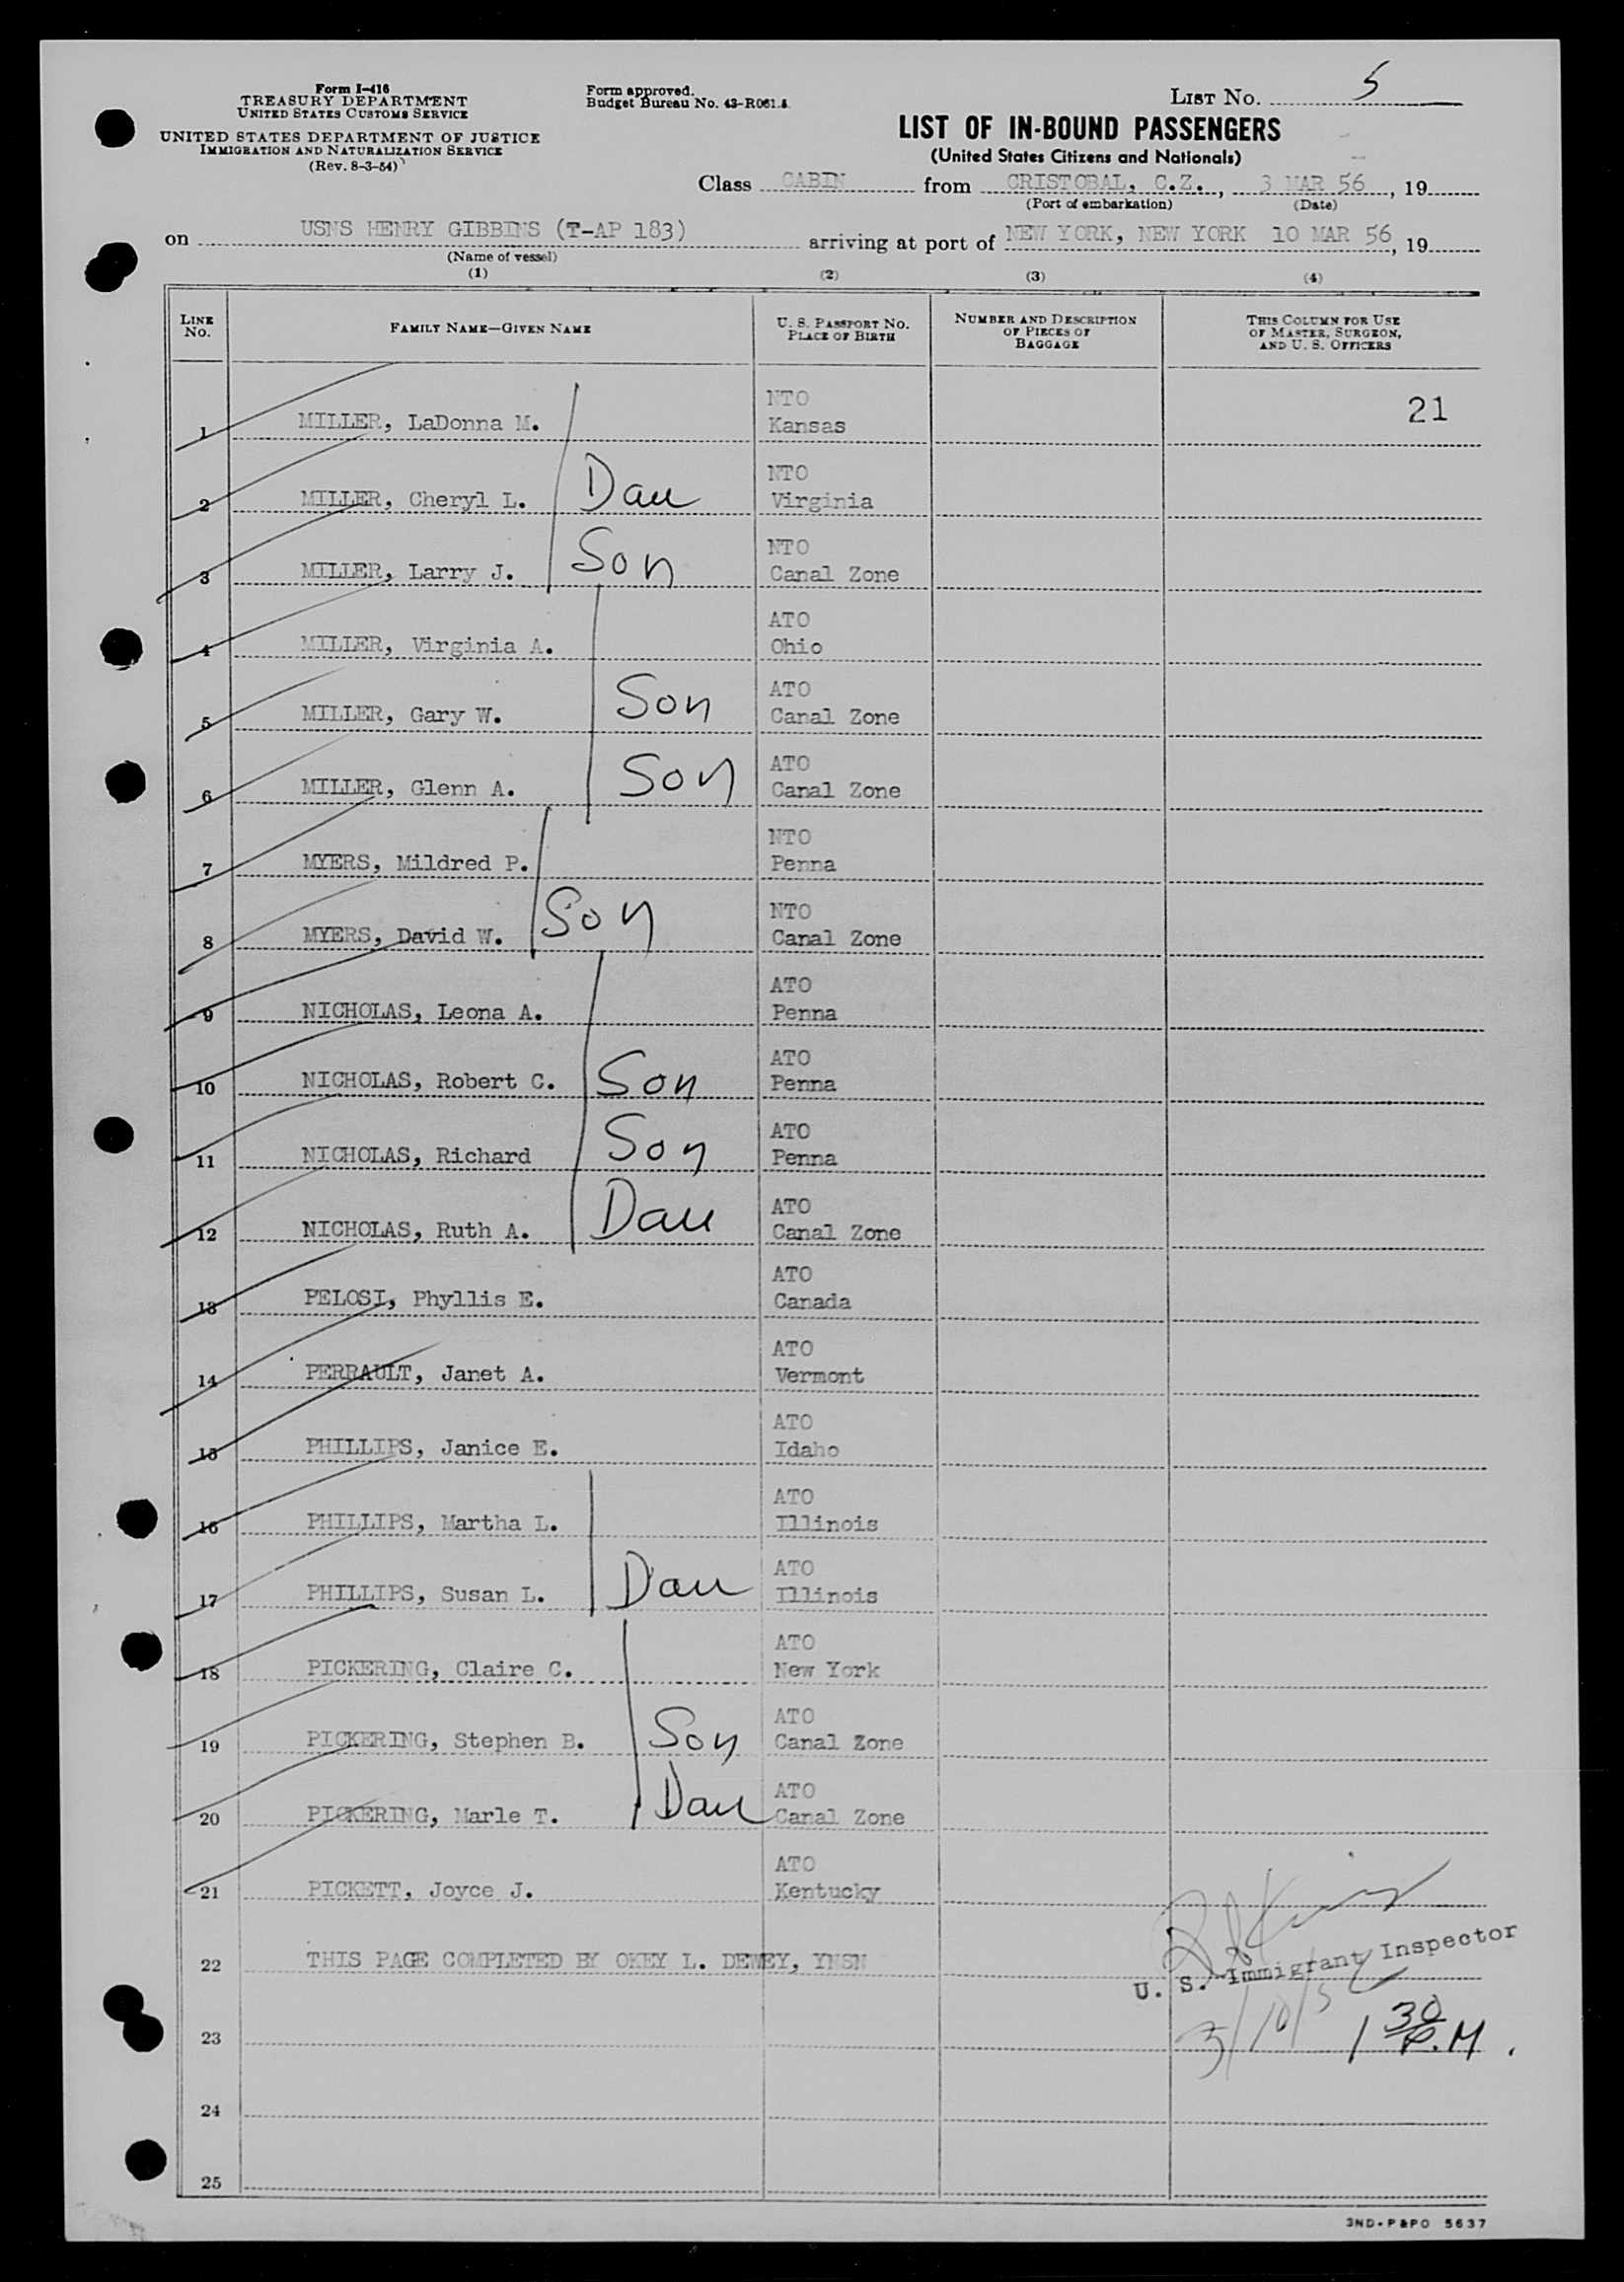 Form I-416
TREASURY DEPARTMENT
UNITED STATES CUSTOMS SERVICE
UNITED STATES DEPARTMENT OF JUSTICE
IMMIGRATION AND NATURALIZATION SERVICE
(Rev. 8-3-54)
Form approved.
Budget Bureau No. 43-R061.4
LIST No. 5
LIST OF IN-BOUND PASSENGERS
(United States Citizens and Nationals)
Class CABIN from CRISTOBAL, C.Z., 3 MAR 56, 19
(Port of embarkation) (Date)
on USNS HENRY GIBBINS (T-AP 183) arriving at port of NEW YORK, NEW YORK 10 MAR 56, 19
(Name of vessel)
(1) (2) (3) (4)
LINE No. FAMILY NAME—GIVEN NAME U. S. PASSPORT No. PLACE OF BIRTH NUMBER AND DESCRIPTION OF PIECES OF BAGGAGE THIS COLUMN FOR USE OF MASTER, SURGEON, AND U. S. OFFICERS
NTO
1 MILLER, LaDonna M. Kansas 21
NTO
2 MILLER, Cheryl L. Dau Virginia
NTO
3 MILLER, Larry J. Son Canal Zone
ATO
4 MILLER, Virginia A. Ohio
ATO
5 MILLER, Gary W. Son Canal Zone
ATO
6 MILLER, Glenn A. Son Canal Zone
NTO
7 MYERS, Mildred P. Penna
NTO
8 MYERS, David W. Son Canal Zone
ATO
9 NICHOLAS, Leona A. Penna
ATO
10 NICHOLAS, Robert C. Son Penna
ATO
11 NICHOLAS, Richard Son Penna
ATO
12 NICHOLAS, Ruth A. Dau Canal Zone
ATO
13 PELOSI, Phyllis E. Canada
ATO
14 PERRAULT, Janet A. Vermont
ATO
15 PHILLIPS, Janice E. Idaho
ATO
16 PHILLIPS, Martha L. Illinois
ATO
17 PHILLIPS, Susan L. Dau Illinois
ATO
18 PICKERING, Claire C. New York
ATO
19 PICKERING, Stephen B. Son Canal Zone
ATO
20 PICKERING, Marle T. Dau Canal Zone
ATO
21 PICKETT, Joyce J. Kentucky
22 THIS PAGE COMPLETED BY OKEY L. DEWEY, YNSN
U. S. Immigrant Inspector
23 3/10/5 1 30 P.M.
24
25
3ND-P&PO 5637